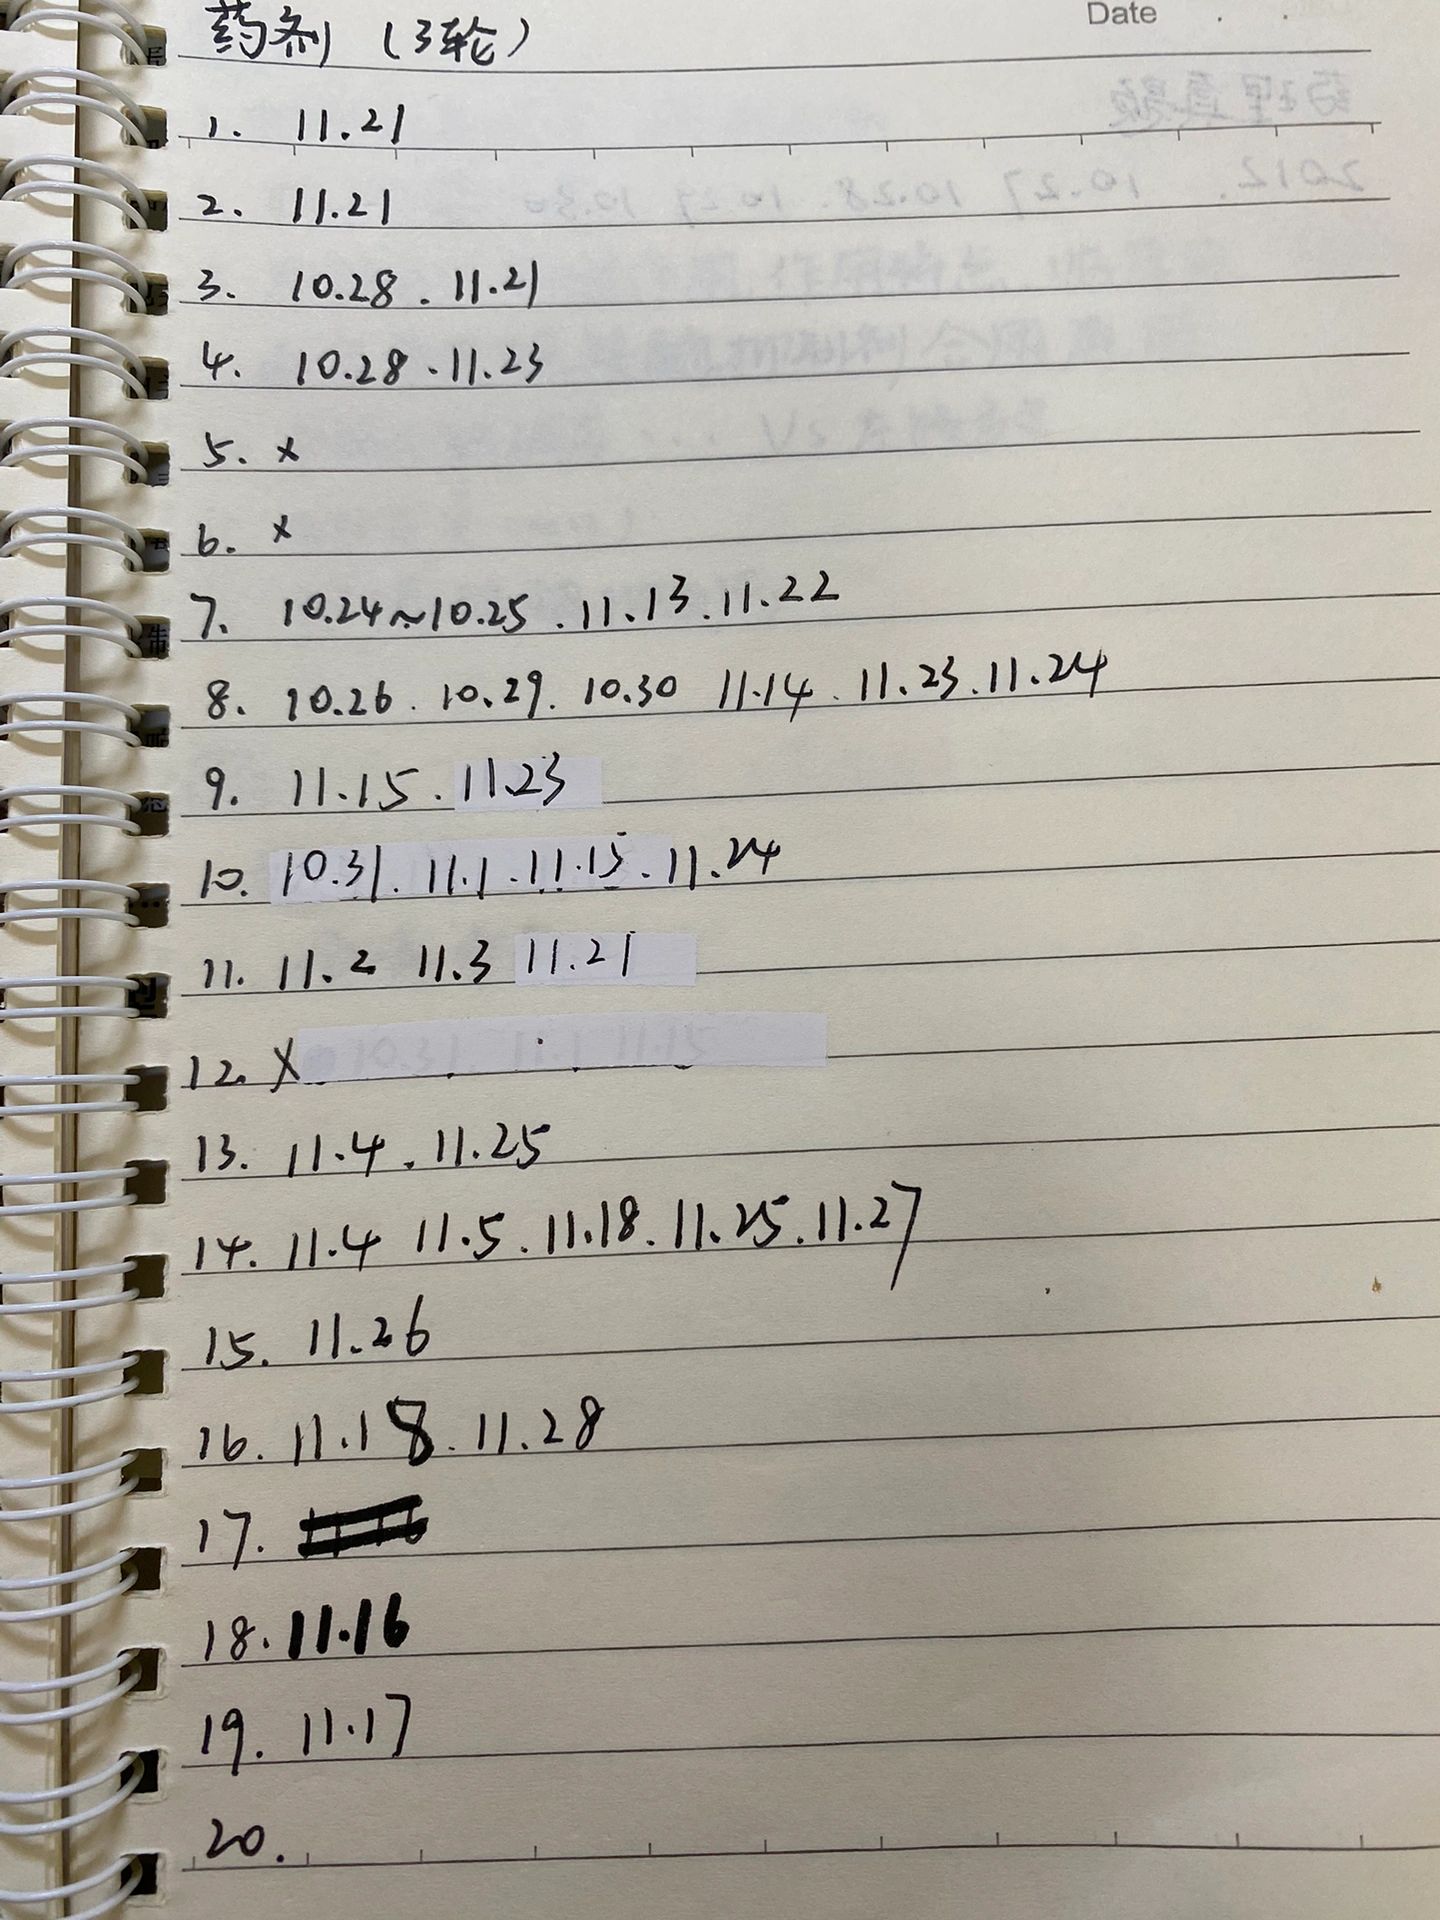 Date
药剂（3轮）
1. 11.21
2. 11.21
3. 10.28 . 11.21
4. 10.28 . 11.23
5. ×
6. ×
7. 10.24~10.25 . 11.13 . 11.22
8. 10.26 . 10.29 . 10.30 11.14 . 11.23 . 11.24
9. 11.15 . 11.23
10. 10.31 . 11.1 . 11.15 . 11.24
11. 11.2 11.3 11.21
12. ×
13. 11.4 . 11.25
14. 11.4 11.5 . 11.18 . 11.25 . 11.27
15. 11.26
16. 11.18 . 11.28
17.
18. 11.16
19. 11.17
20.